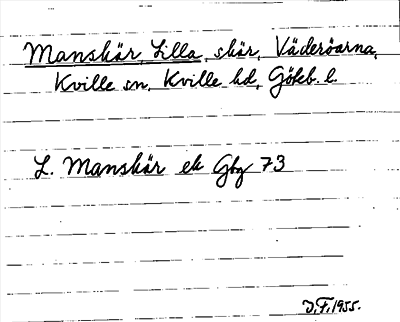 Manskär, Lilla, skär, Väderöarna,
Kville sn, Kville hd, Göteb. l.
L. Manskär ek Gbg 73
J.F. 1955.